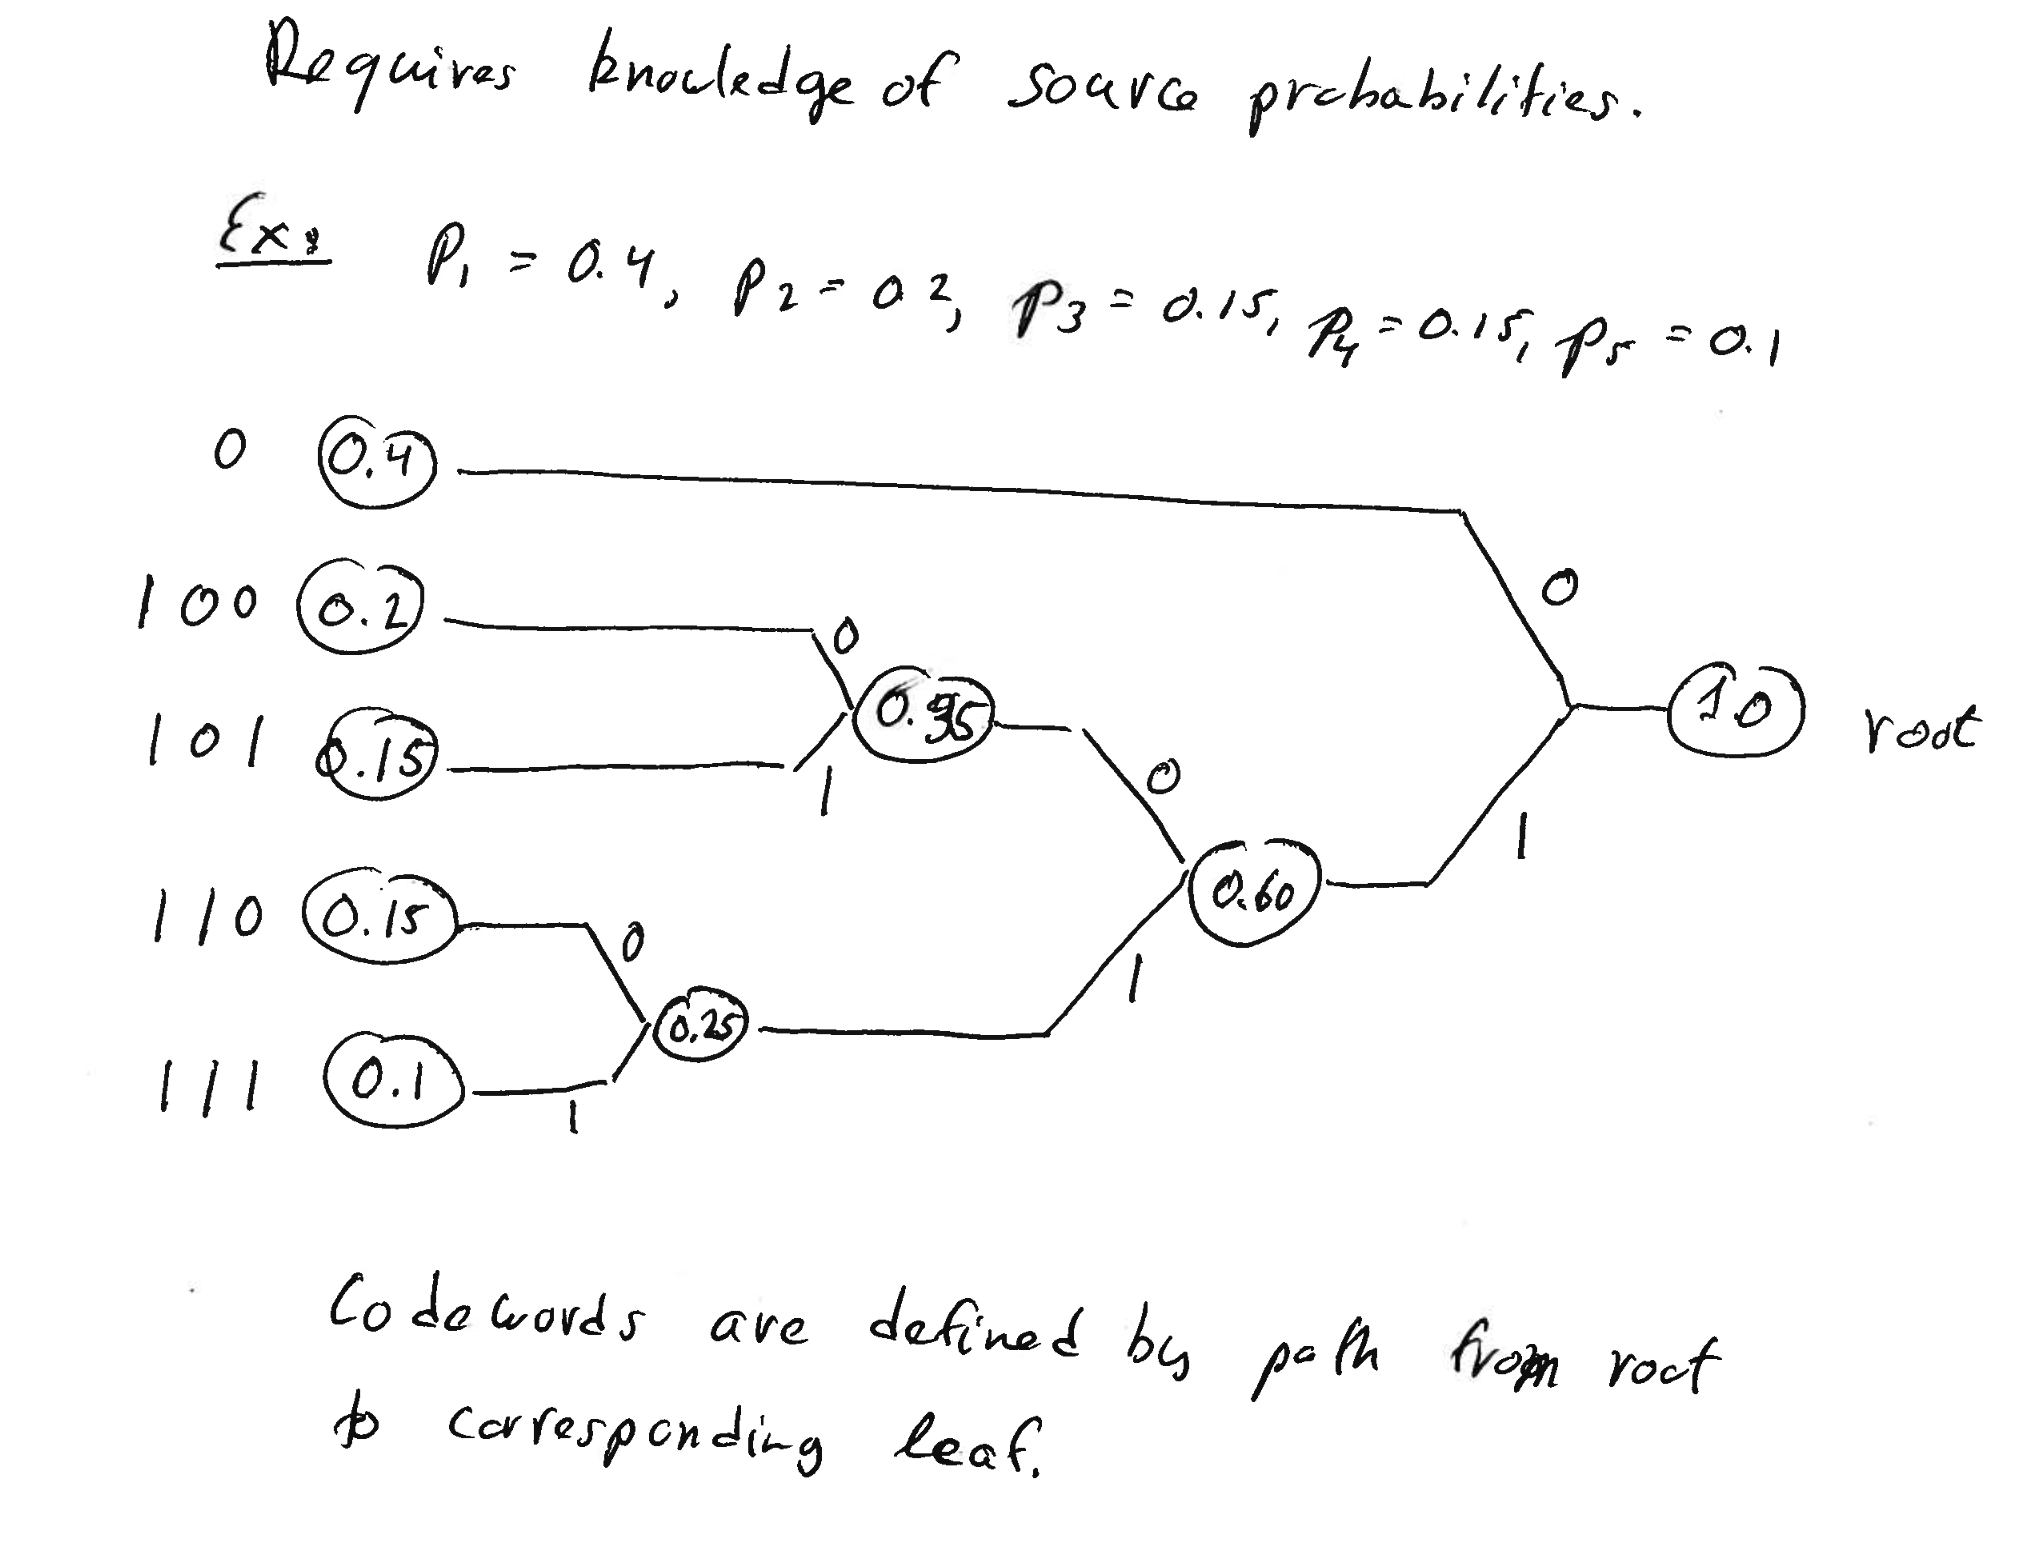 Requires knowledge of source probabilities.
Ex: P1 = 0.4, P2 = 0.2, P3 = 0.15, P4 = 0.15, P5 = 0.1
0 0.4
0
100 0.2
0
0.35
1.0 root
101 0.15
1
0
1
0.60
110 0.15
0
1
0.25
111 0.1
1
Codewords are defined by path from root
to corresponding leaf.